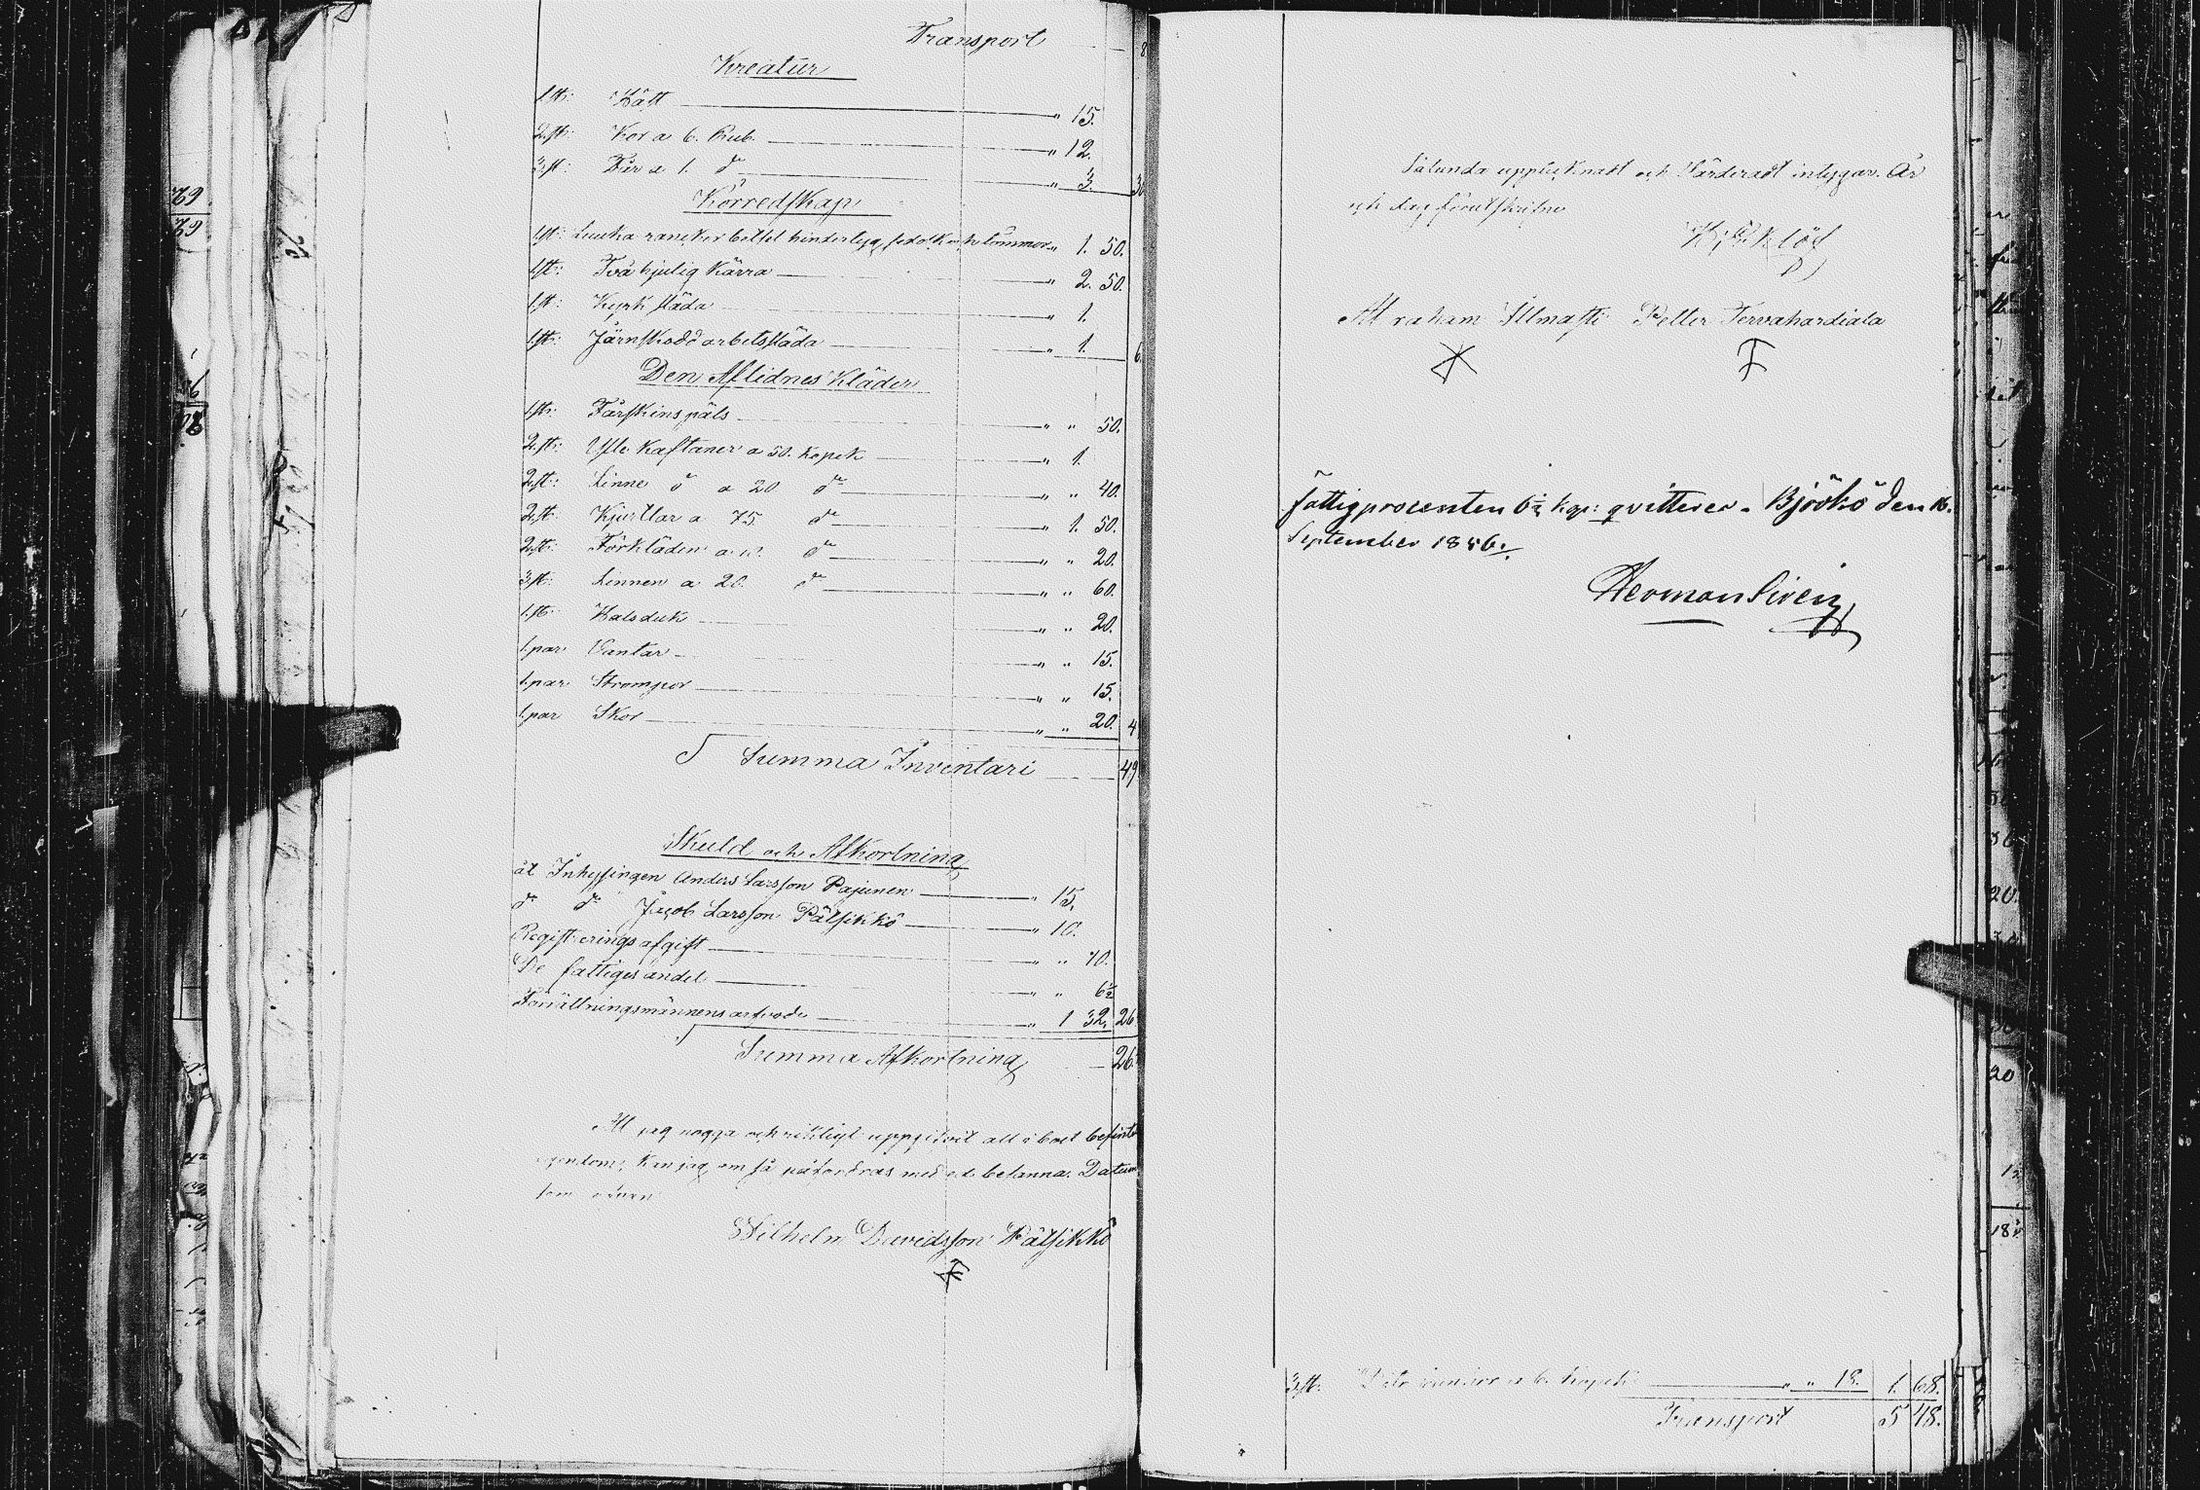 Transport
Kreatur
1.st: Hätt " 15.
2.st: Kor a 6. Rub. " 12.
3.st: Får a 1. do " 3.
Körredskap
1.st: " 1. 50.
1.st: Två hjulig Kärra " 2. 50.
1.st: Kyrk släda " 1.
1.st: Järnskodd arbetssläda " 1. 6.
Den Aflidnes Kläder
1.st: Fårskins päls " " 50.
2.st: Ylle Kaftaner a 50. kopek " 1.
2.st: Linne do a 20 do " " 40.
2.st: Kjortlar a 75 do " 1. 50.
2.st: Förkläden a 10. do " " 20.
3.st: Linnen a 20. do " " 60.
1.st: Halsduk " " 20.
1.par Vantar " " 15.
1.par Strumpor " " 15.
1.par Skor " " 20. 4
Summa Inventari 49
Skuld och Afkortning
åt Inhysingen Anders Larsson Pajunen " 15.
do do Jacob Larsson Pätsikkö " 10.
Registreringsafgift " " 10.
De fattiges andel " " 6½
Förrättningsmännens arfvode " 1 32. 26
Summa Afkortning 26
At jag noga och riktigt uppgifvit all i boet befint
egendom, kan jag om så påfordras med ed betanna. Datum
som ofvan
Wilhelm Davidsson Pätsikkö
Sålunda upptecknadt och Värderadt intygar. År
och dag förutskrifne
Abraham Ilmasti Petter Tervahardiala
fattigprocenten 6½ kop: qvitterer. Björkö den 16.
September 1856.
Herman Siren
3.st. a 6. kopek " " 18. 1. 68.
Transport 5 48.